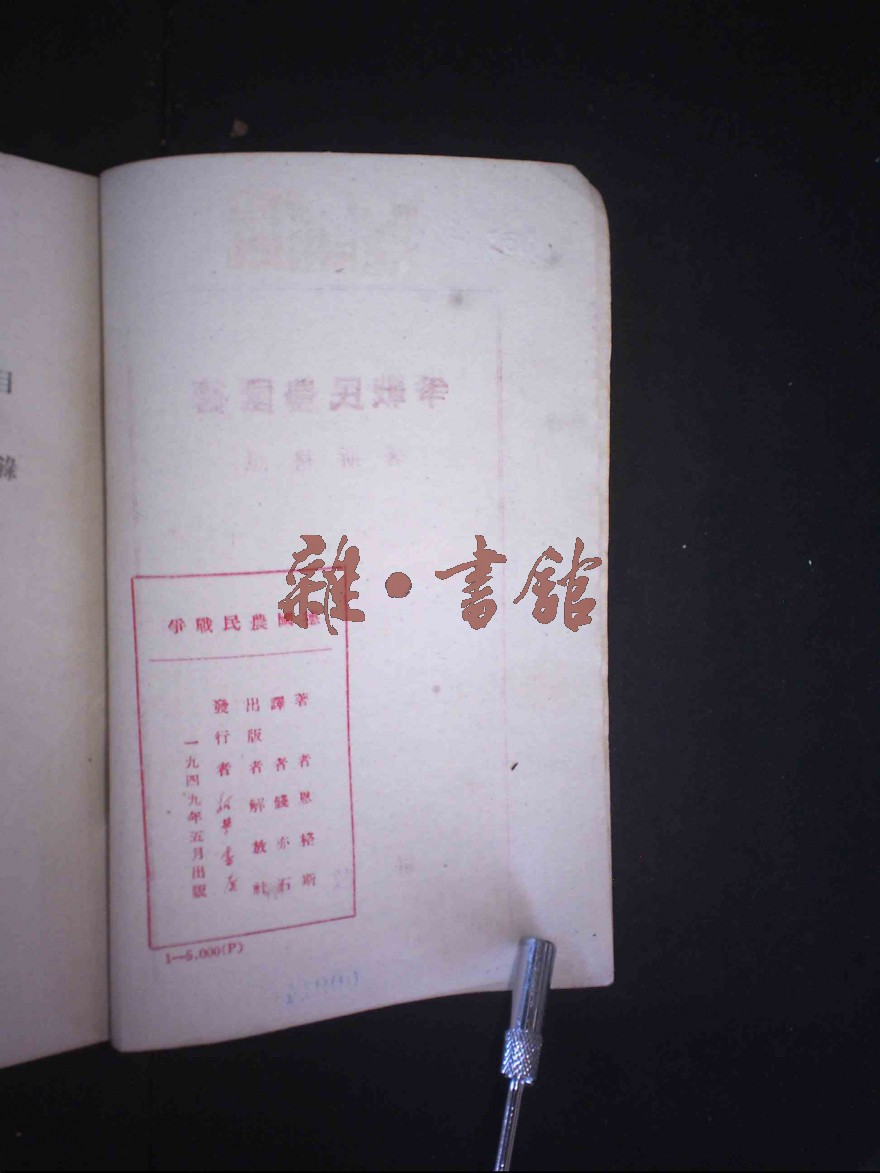 目錄
雜·書館
德國農民戰爭
著者 恩格斯
譯者 錢亦石
出版者 解放社
發行者 新華書店
一九四九年五月出版
1—5,000(P)